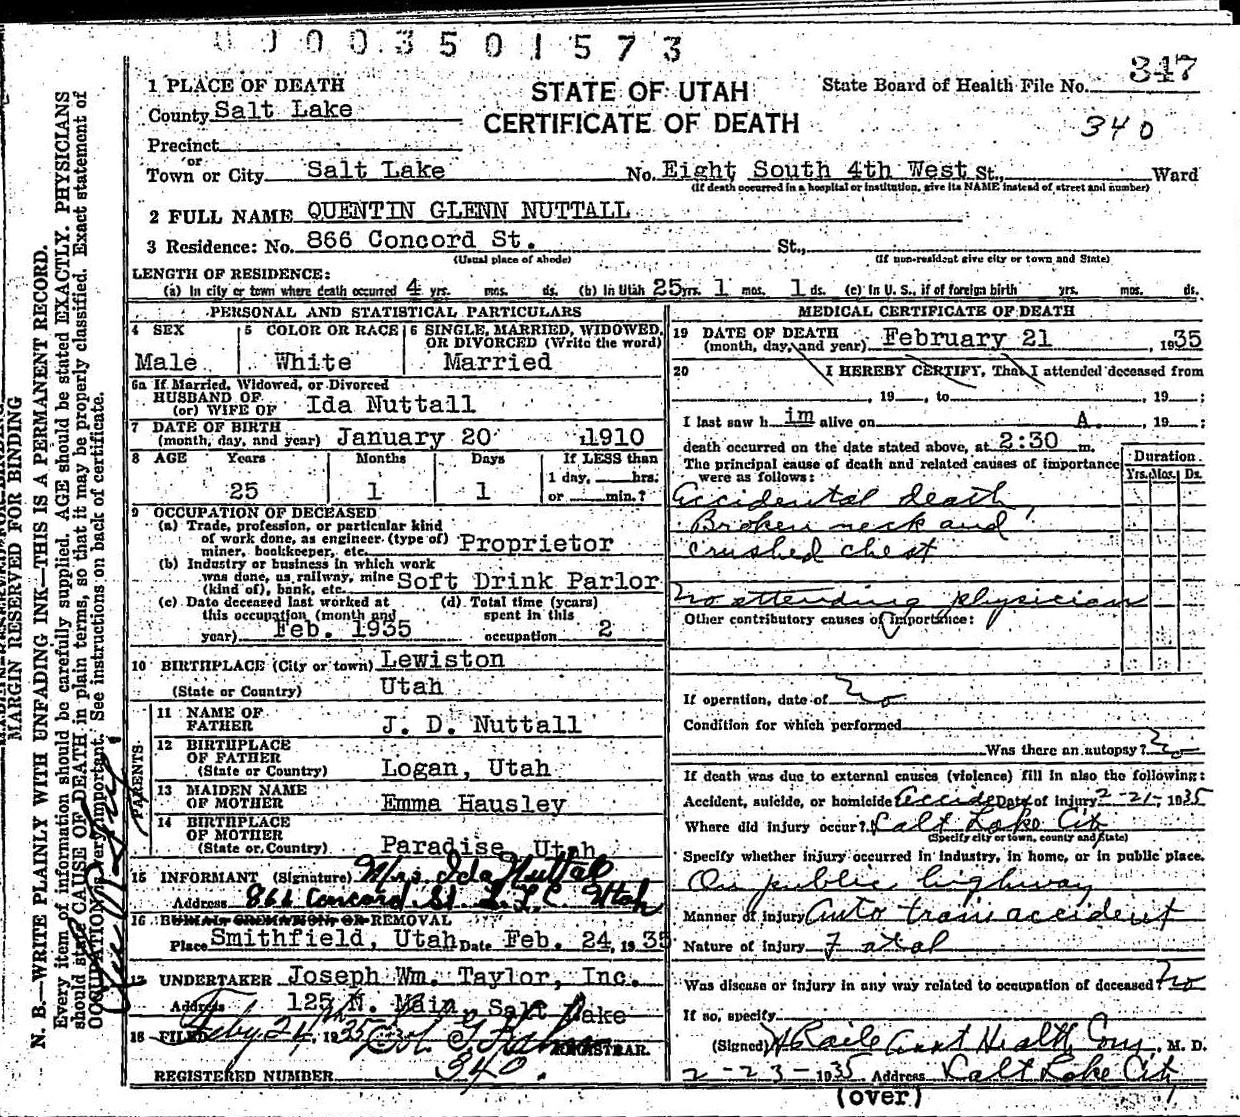 0003501573
1 PLACE OF DEATH
STATE OF UTAH
CERTIFICATE OF DEATH
State Board of Health File No. 347
340
County Salt Lake
Precinct
or
Town or City Salt Lake No. Eight South 4th West St., Ward
(If death occurred in a hospital or institution, give its NAME instead of street and number)
2 FULL NAME QUENTIN GLENN NUTTALL
3 Residence: No. 866 Concord St. St.,
(Usual place of abode) (If non-resident give city or town and State)
LENGTH OF RESIDENCE:
(a) In city or town where death occurred 4 yrs. mos. ds. (b) In Utah 25 yrs. 1 mos. 1 ds. (c) In U. S., if of foreign birth yrs. mos. ds.
PERSONAL AND STATISTICAL PARTICULARS
4 SEX Male
5 COLOR OR RACE White
6 SINGLE, MARRIED, WIDOWED, OR DIVORCED (Write the word) Married
6a If Married, Widowed, or Divorced
HUSBAND OF
(or) WIFE OF Ida Nuttall
7 DATE OF BIRTH
(month, day, and year) January 20 1910
8 AGE Years Months Days If LESS than
25 1 1 1 day, hrs.
or min.?
9 OCCUPATION OF DECEASED
(a) Trade, profession, or particular kind
of work done, as engineer (type of)
miner, bookkeeper, etc. Proprietor
(b) Industry or business in which work
was done, as railway, mine
(kind of), bank, etc. Soft Drink Parlor
(c) Date deceased last worked at
this occupation (month and
year) Feb. 1935
(d) Total time (years)
spent in this
occupation 2
10 BIRTHPLACE (City or town) Lewiston
(State or Country) Utah
PARENTS
11 NAME OF
FATHER J. D. Nuttall
12 BIRTHPLACE
OF FATHER
(State or Country) Logan, Utah
13 MAIDEN NAME
OF MOTHER Emma Hausley
14 BIRTHPLACE
OF MOTHER
(State or Country) Paradise, Utah
15 INFORMANT (Signature) Mrs. Ida Nuttall
Address 866 Concord St. S.L.C. Utah
16 BURIAL, CREMATION, OR REMOVAL
Place Smithfield, Utah Date Feb. 24, 1935
17 UNDERTAKER Joseph Wm. Taylor, Inc.
Address 125 N. Main, Salt Lake
18 FILED Feby. 24th, 1935
REGISTRAR.
REGISTERED NUMBER 340.
MEDICAL CERTIFICATE OF DEATH
19 DATE OF DEATH
(month, day, and year) February 21, 1935
20 I HEREBY CERTIFY, That I attended deceased from
, 19 , to , 19 ;
I last saw h im alive on A. , 19 ;
death occurred on the date stated above, at 2:30 m.
The principal cause of death and related causes of importance
were as follows:
Duration
Yrs. Mos. Ds.
Accidental death,
Broken neck and
crushed chest
No attending physician
Other contributory causes of importance:
If operation, date of No
Condition for which performed
Was there an autopsy? No
If death was due to external causes (violence) fill in also the following:
Accident, suicide, or homicide Accident Date of injury 2-21-, 1935
Where did injury occur? Salt Lake City
(Specify city or town, county and State)
Specify whether injury occurred in industry, in home, or in public place.
On public highway
Manner of injury Auto train accident
Nature of injury Fatal
Was disease or injury in any way related to occupation of deceased? No
If so, specify
(Signed) Asst Health Com, M. D.
2-23-1935 Address Salt Lake City
(over)
MARGIN RESERVED FOR BINDING
N. B.—WRITE PLAINLY WITH UNFADING INK—THIS IS A PERMANENT RECORD.
Every item of information should be carefully supplied. AGE should be stated EXACTLY. PHYSICIANS
should state CAUSE OF DEATH in plain terms, so that it may be properly classified. Exact statement of
OCCUPATION is very important. See instructions on back of certificate.